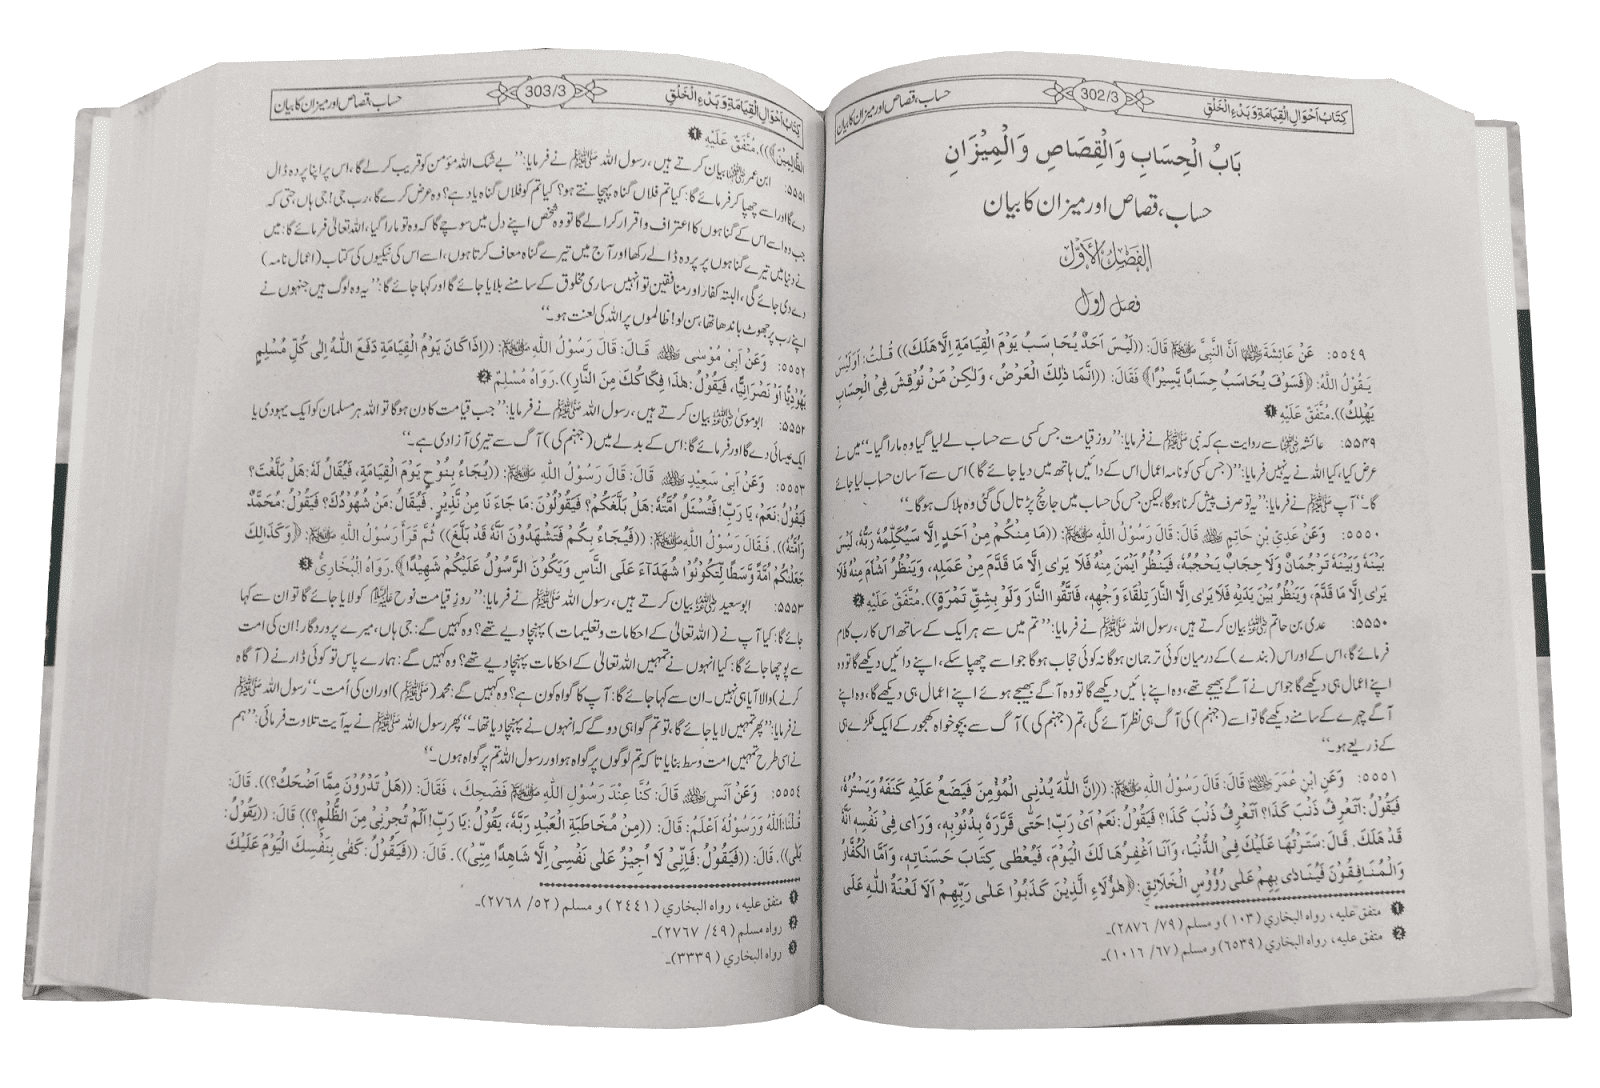 كِتَابُ اَحْوَالِ الْقِيَامَةِ وَ بَدْءِ الْخَلْقِ
302/3
حساب، قصاص اور میزان کا بیان
بَابُ الْحِسَابِ وَالْقِصَاصِ وَالْمِيْزَانِ
حساب، قصاص اور میزان کا بیان
الفَصْلُ الْأَوَّلُ
فصل اول
٥٥٤٩: عَنْ عَائِشَةَ ؓ اَنَّ النَّبِيَّ ﷺ قَالَ: ((لَيْسَ اَحَدٌ يُحَاسَبُ يَوْمَ الْقِيَامَةِ اِلَّا هَلَكَ)) قُلْتُ: اَوَلَيْسَ
يَقُولُ اللّٰهُ: ﴿فَسَوْفَ يُحَاسَبُ حِسَابًا يَّسِيْرًا﴾ فَقَالَ: ((اِنَّمَا ذٰلِكَ الْعَرْضُ، وَلٰكِنْ مَنْ نُوْقِشَ فِي الْحِسَابِ
يَهْلِكُ)). مُتَّفَقٌ عَلَيْهِ ❶
۵۵۴۹: عائشہ ؓ سے روایت ہے کہ نبی ﷺ نے فرمایا: ’’روز قیامت جس کسی سے حساب لے لیا گیا وہ مارا گیا۔‘‘ میں نے
عرض کیا، کیا اللہ نے یہ نہیں فرمایا: ’’(جس کسی کو نامہ اعمال اس کے دائیں ہاتھ میں دیا جائے گا) اس سے آسان حساب لیا جائے
گا۔‘‘ آپ ﷺ نے فرمایا: ’’یہ تو صرف پیش کرنا ہوگا، لیکن جس کی حساب میں جانچ پڑتال کی گئی وہ ہلاک ہوگا۔‘‘
٥٥٥٠: وَعَنْ عَدِيِّ بْنِ حَاتِمٍ ؓ قَالَ: قَالَ رَسُوْلُ اللّٰهِ ﷺ: ((مَا مِنْكُمْ مِنْ اَحَدٍ اِلَّا سَيُكَلِّمُهُ رَبُّهُ، لَيْسَ
بَيْنَهُ وَبَيْنَهُ تَرْجُمَانٌ وَلَا حِجَابٌ يَحْجُبُهُ، فَيَنْظُرُ اَيْمَنَ مِنْهُ فَلَا يَرٰى اِلَّا مَا قَدَّمَ مِنْ عَمَلِهِ، وَيَنْظُرُ اَشْاَمَ مِنْهُ فَلَا
يَرٰى اِلَّا مَا قَدَّمَ، وَيَنْظُرُ بَيْنَ يَدَيْهِ فَلَا يَرٰى اِلَّا النَّارَ تِلْقَاءَ وَجْهِهِ، فَاتَّقُوا النَّارَ وَلَوْ بِشِقِّ تَمْرَةٍ)). مُتَّفَقٌ عَلَيْهِ ❷
۵۵۵۰: عدی بن حاتم ؓ بیان کرتے ہیں، رسول اللہ ﷺ نے فرمایا: ’’تم میں سے ہر ایک کے ساتھ اس کا رب کلام
فرمائے گا، اس کے اور اس (بندے) کے درمیان کوئی ترجمان ہوگا نہ کوئی حجاب ہوگا جو اسے چھپا سکے، اپنے دائیں دیکھے گا تو وہ
اپنے اعمال ہی دیکھے گا جو اس نے آگے بھیجے تھے، وہ اپنے بائیں دیکھے گا تو وہ آگے بھیجے ہوئے اپنے اعمال ہی دیکھے گا، وہ اپنے
آگے چہرے کے سامنے دیکھے گا تو اسے (جہنم) کی آگ ہی نظر آئے گی، تم (جہنم کی) آگ سے بچو خواہ کھجور کے ایک ٹکڑے ہی
کے ذریعے ہو۔‘‘
٥٥٥١: وَعَنِ ابْنِ عُمَرَ ؓ قَالَ: قَالَ رَسُوْلُ اللّٰهِ ﷺ: ((اِنَّ اللّٰهَ يُدْنِي الْمُؤْمِنَ فَيَضَعُ عَلَيْهِ كَنَفَهُ وَيَسْتُرُهُ،
فَيَقُوْلُ: اَتَعْرِفُ ذَنْبَ كَذَا؟ اَتَعْرِفُ ذَنْبَ كَذَا؟ فَيَقُوْلُ: نَعَمْ اَيْ رَبِّ! حَتّٰى قَرَّرَهُ بِذُنُوْبِهِ، وَرَاٰى فِيْ نَفْسِهِ اَنَّهُ
قَدْ هَلَكَ. قَالَ: سَتَرْتُهَا عَلَيْكَ فِي الدُّنْيَا، وَاَنَا اَغْفِرُهَا لَكَ الْيَوْمَ، فَيُعْطٰى كِتَابَ حَسَنَاتِهِ، وَاَمَّا الْكُفَّارُ
وَالْمُنَافِقُوْنَ فَيُنَادٰى بِهِمْ عَلٰى رُؤُوْسِ الْخَلَائِقِ: ﴿هٰؤُلَاءِ الَّذِيْنَ كَذَبُوْا عَلٰى رَبِّهِمْ اَلَا لَعْنَةُ اللّٰهِ عَلَى
❶ متفق عليه، رواه البخاري (١٠٣) و مسلم (٧٩/ ٢٨٧٦)۔
❷ متفق عليه، رواه البخاري (٦٥٣٩) و مسلم (٦٧/ ١٠١٦)۔
كِتَابُ اَحْوَالِ الْقِيَامَةِ وَ بَدْءِ الْخَلْقِ
303/3
حساب، قصاص اور میزان کا بیان
الظَّالِمِيْنَ﴾)). مُتَّفَقٌ عَلَيْهِ ❶
۵۵۵۱: ابن عمر ؓ بیان کرتے ہیں، رسول اللہ ﷺ نے فرمایا: ’’بے شک اللہ مؤمن کو قریب کرلے گا، اس پر اپنا پردہ ڈال
دے گا اور اسے چھپا کر فرمائے گا: کیا تم فلاں گناہ پہچانتے ہو؟ کیا تم کو فلاں گناہ یاد ہے؟ وہ عرض کرے گا، رب جی! جی ہاں، حتی کہ
جب وہ اسے اس کے گناہوں کا اعتراف و اقرار کرالے گا تو وہ شخص اپنے دل میں سوچے گا کہ وہ تو مارا گیا، اللہ تعالیٰ فرمائے گا: میں
نے دنیا میں تیرے گناہوں پر پردہ ڈالے رکھا اور آج میں تیرے گناہ معاف کرتا ہوں، اسے اس کی نیکیوں کی کتاب (اعمال نامہ)
دے دی جائے گی، البتہ کفار اور منافقین تو انہیں ساری مخلوق کے سامنے بلایا جائے گا اور کہا جائے گا: ’’یہ وہ لوگ ہیں جنہوں نے
اپنے رب پر جھوٹ باندھا تھا، سن لو! ظالموں پر اللہ کی لعنت ہو۔‘‘
٥٥٥٢: وَعَنْ اَبِيْ مُوْسٰى ؓ قَالَ: قَالَ رَسُوْلُ اللّٰهِ ﷺ: ((اِذَا كَانَ يَوْمُ الْقِيَامَةِ دَفَعَ اللّٰهُ اِلٰى كُلِّ مُسْلِمٍ
يَهُوْدِيًّا اَوْ نَصْرَانِيًّا، فَيَقُوْلُ: هٰذَا فِكَاكُكَ مِنَ النَّارِ)). رَوَاهُ مُسْلِمٌ ❷
۵۵۵۲: ابوموسیٰ ؓ بیان کرتے ہیں، رسول اللہ ﷺ نے فرمایا: ’’جب قیامت کا دن ہوگا تو اللہ ہر مسلمان کو ایک یہودی یا
ایک عیسائی دے گا اور فرمائے گا: اس کے بدلے میں (جہنم کی) آگ سے تیری آزادی ہے۔‘‘
٥٥٥٣: وَعَنْ اَبِيْ سَعِيْدٍ ؓ قَالَ: قَالَ رَسُوْلُ اللّٰهِ ﷺ: ((يُجَاءُ بِنُوْحٍ يَوْمَ الْقِيَامَةِ، فَيُقَالُ لَهُ: هَلْ بَلَّغْتَ؟
فَيَقُوْلُ: نَعَمْ، يَا رَبِّ! فَتُسْئَلُ اُمَّتُهُ: هَلْ بَلَّغَكُمْ؟ فَيَقُوْلُوْنَ: مَا جَاءَ نَا مِنْ نَّذِيْرٍ. فَيُقَالُ: مَنْ شُهُوْدُكَ؟ فَيَقُوْلُ: مُحَمَّدٌ
وَاُمَّتُهُ)). فَقَالَ رَسُوْلُ اللّٰهِ ﷺ: ((فَيُجَاءُ بِكُمْ فَتَشْهَدُوْنَ اَنَّهُ قَدْ بَلَّغَ)) ثُمَّ قَرَاَ رَسُوْلُ اللّٰهِ ﷺ: ﴿وَكَذٰلِكَ
جَعَلْنٰكُمْ اُمَّةً وَّسَطًا لِّتَكُوْنُوْا شُهَدَآءَ عَلَى النَّاسِ وَيَكُوْنَ الرَّسُوْلُ عَلَيْكُمْ شَهِيْدًا﴾. رَوَاهُ الْبُخَارِيُّ ❸
۵۵۵۳: ابوسعید ؓ بیان کرتے ہیں، رسول اللہ ﷺ نے فرمایا: ’’روز قیامت نوح علیہ السلام کو لایا جائے گا تو ان سے کہا
جائے گا: کیا آپ نے (اللہ تعالیٰ کے احکامات و تعلیمات) پہنچا دیے تھے؟ وہ کہیں گے: جی ہاں، میرے پروردگار! ان کی امت
سے پوچھا جائے گا: کیا انہوں نے تمہیں اللہ تعالیٰ کے احکامات پہنچا دیے تھے؟ وہ کہیں گے: ہمارے پاس تو کوئی ڈرانے (آگاہ
کرنے) والا آیا ہی نہیں۔ ان سے کہا جائے گا: آپ کا گواہ کون ہے؟ وہ کہیں گے: محمد (ﷺ) اور ان کی اُمت۔‘‘ رسول اللہ ﷺ
نے فرمایا: ’’پھر تمہیں لایا جائے گا، تو تم گواہی دو گے کہ انہوں نے پہنچا دیا تھا۔‘‘ پھر رسول اللہ ﷺ نے یہ آیت تلاوت فرمائی: ’’ہم
نے اسی طرح تمہیں امت وسط بنایا تاکہ تم لوگوں پر گواہ ہو اور رسول اللہ تم پر گواہ ہوں۔‘‘
٥٥٥٤: وَعَنْ اَنَسٍ ؓ قَالَ: كُنَّا عِنْدَ رَسُوْلِ اللّٰهِ ﷺ فَضَحِكَ، فَقَالَ: ((هَلْ تَدْرُوْنَ مِمَّا اَضْحَكُ؟)). قَالَ:
قُلْنَا: اَللّٰهُ وَرَسُوْلُهُ اَعْلَمُ: قَالَ: ((مِنْ مُخَاطَبَةِ الْعَبْدِ رَبَّهُ، يَقُوْلُ: يَا رَبِّ! اَلَمْ تُجِرْنِيْ مِنَ الظُّلْمِ؟)) قَالَ: ((يَقُوْلُ:
بَلٰى)). قَالَ: ((فَيَقُوْلُ: فَاِنِّيْ لَا اُجِيْزُ عَلٰى نَفْسِيْ اِلَّا شَاهِدًا مِنِّيْ)). قَالَ: ((فَيَقُوْلُ: كَفٰى بِنَفْسِكَ الْيَوْمَ عَلَيْكَ
❶ متفق عليه، رواه البخاري (٢٤٤١) و مسلم (٥٢/ ٢٧٦٨)۔
❷ رواه مسلم (٤٩/ ٢٧٦٧)۔
❸ رواه البخاري (٣٣٣٩)۔